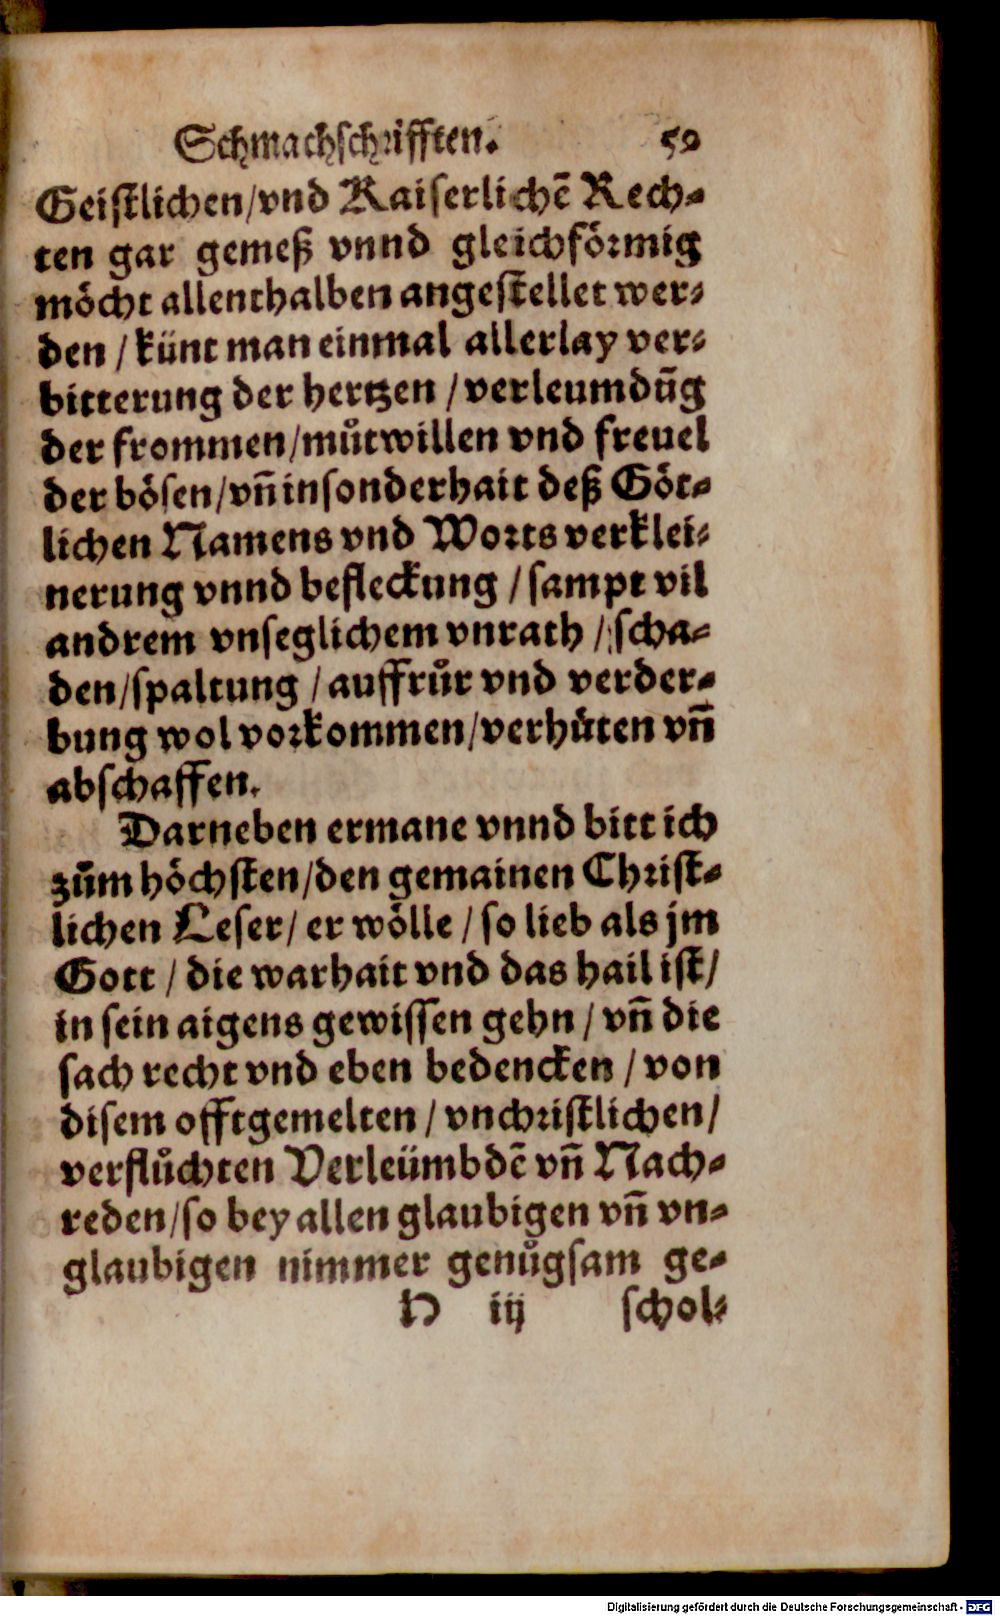 Schmachschrifften. 59
Geistlichen/vnd Kaiserlichē Rech-
ten gar gemeß vnnd gleichförmig
möcht allenthalben angestellet wer-
den / künt man einmal allerlay ver-
bitterung der hertzen / verleumdūg
der frommen/můtwillen vnd freuel
der bösen/vñ insonderhait deß Göt-
lichen Namens vnd Worts verklei-
nerung vnnd befleckung / sampt vil
andrem vnseglichem vnrath / scha-
den/spaltung / auffrůr vnd verder-
bung wol vorkommen/verhüten vñ
abschaffen.
Darneben ermane vnnd bitt ich
zům höchsten/den gemainen Christ-
lichen Leser/ er wölle / so lieb als jm
Gott / die warhait vnd das hail ist/
in sein aigens gewissen gehn / vñ die
sach recht vnd eben bedencken / von
disem offtgemelten / vnchristlichen/
verflůchten Verleümbdē vñ Nach-
reden/so bey allen glaubigen vñ vn-
glaubigen nimmer genůgsam ge-
H iij schol-
Digitalisierung gefördert durch die Deutsche Forschungsgemeinschaft - DFG